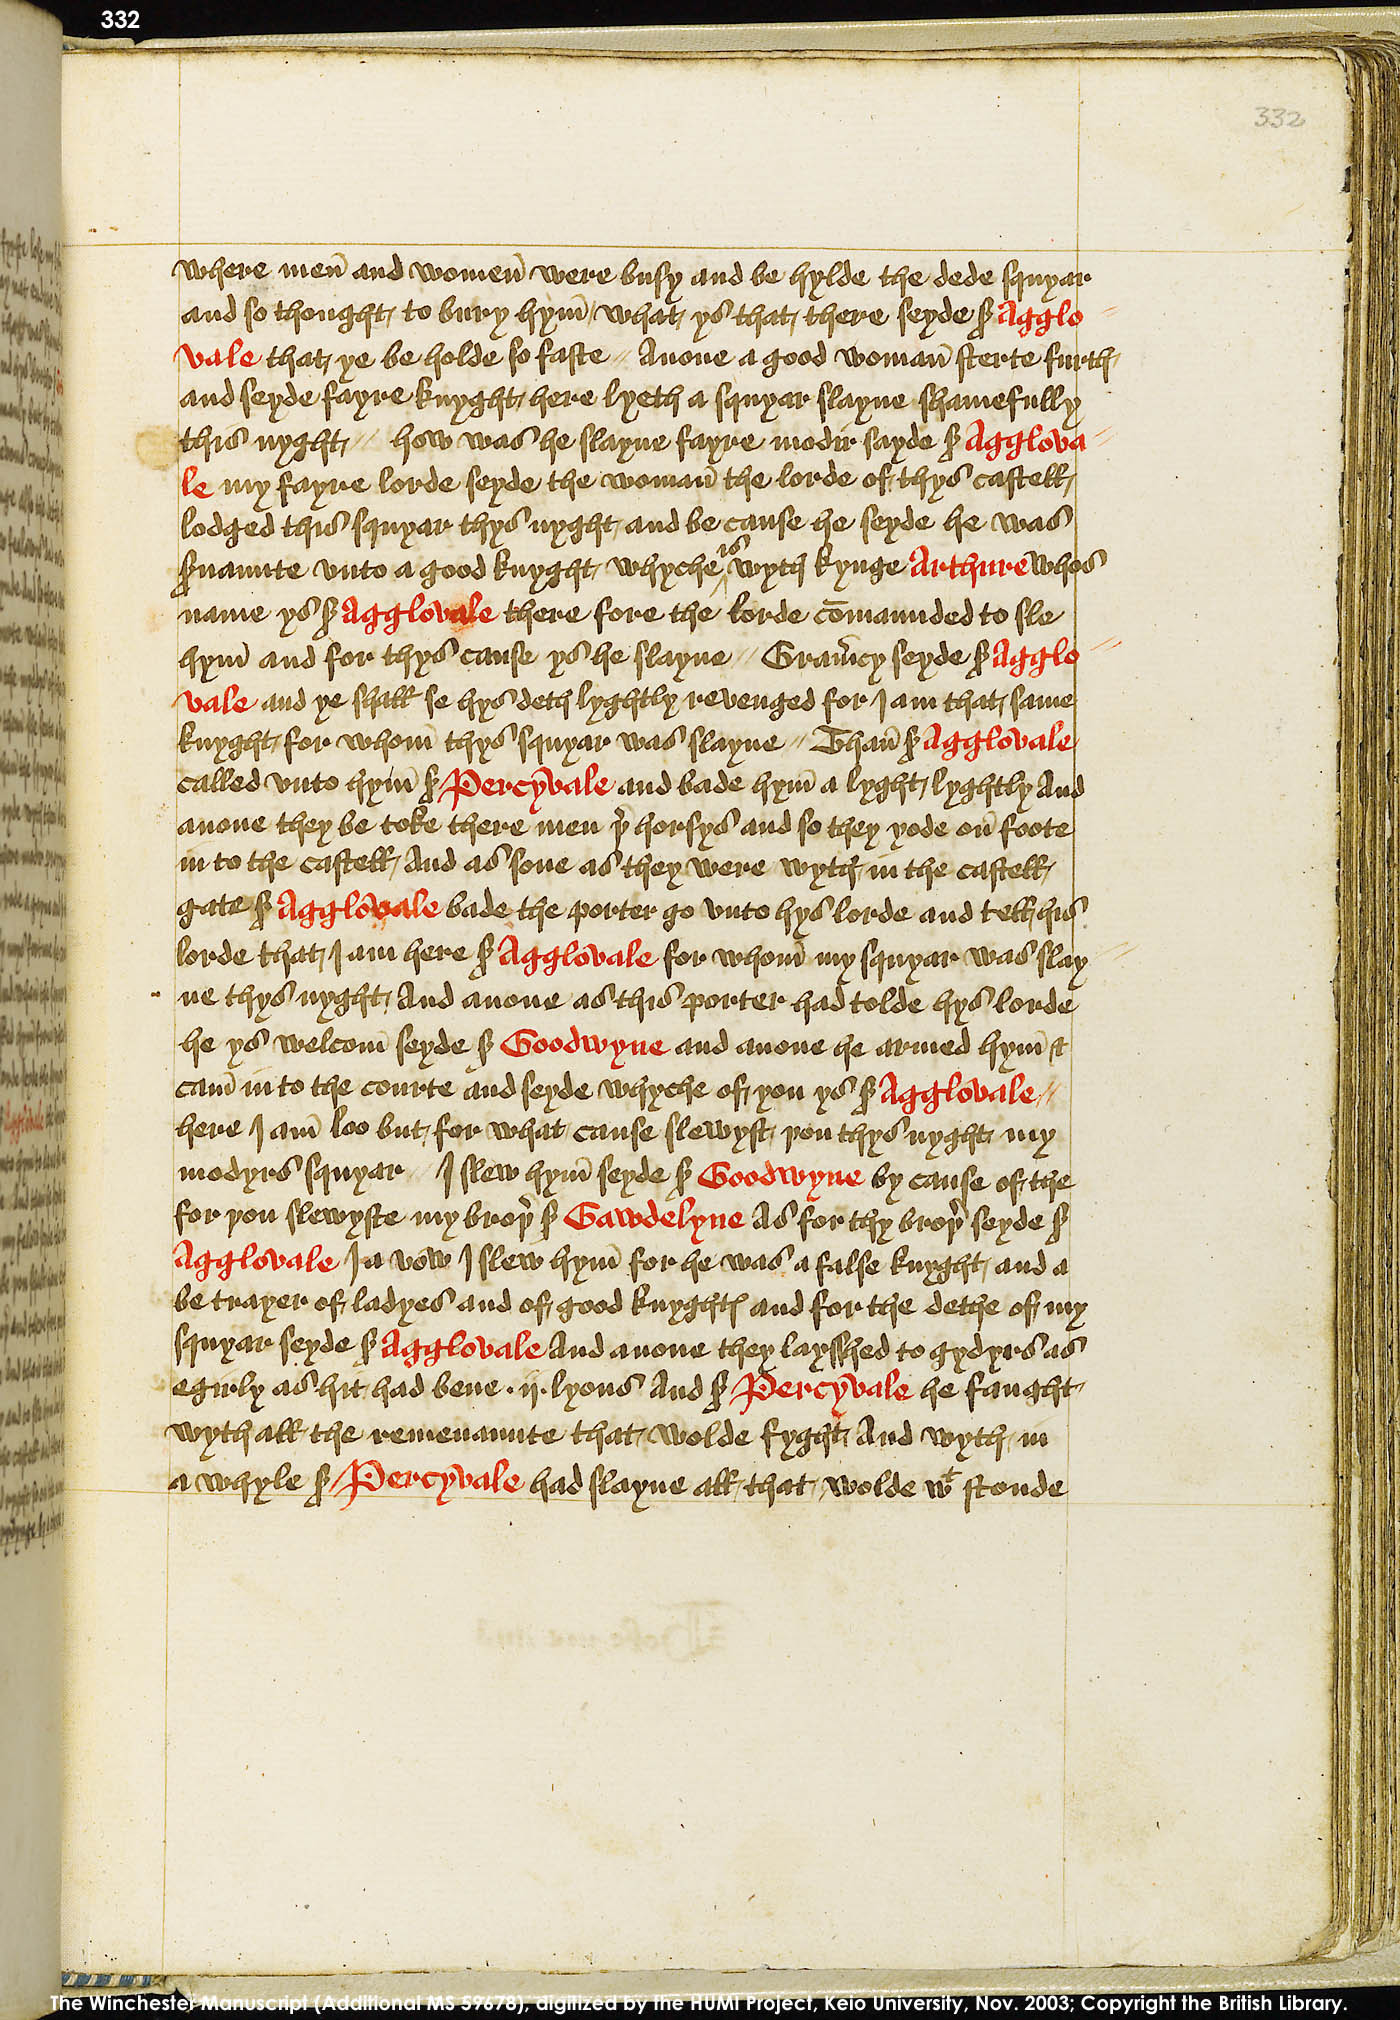 332
332
where men̄ and women̄ were busy and be hylde the dede squyar
and so thought to bury hym̄ / what ys that there seyde ẜ Agglo //
vale that ye be holde so faste // Anone a good woman̄ sterte furth
and seyde fayre knyght here lyeth a squyar slayne shamefully
this nyght // how was he slayne fayre modir sayde ẜ Agglova //
le my fayre lorde seyde the woman̄ the lorde of thys castell
lodged this squyar thys nyght and be cause he seyde he was
ẜuaunte vnto a good knyght whyche ^is wyth kynge Arthure whos
name ys ẜ Agglovale there fore the lorde cōmaunded to sle
hym̄ and for thys cause ys he slayne // Gram̄cy seyde ẜ Agglo //
vale and ye shall se hys deth lyghtly revenged for I am that same
knyght for whom̄ thys squyar was slayne // Than̄ ẜ Agglovale
called vnto hym̄ ẜ Percyvale and bade hym̄ a lyght lyghtly And
anone they be toke there men þ̉ horsys and so they yode on̄ foote
in to the castell And as sone as they were wyth in the castell
gate ẜ Agglovale bade the porter go vnto hys lorde and tell his
lorde that I am here ẜ Agglovale for whom̄ my squyar was slay //
ne thys nyght And anone as this porter had tolde hys lorde
he ys welcom̄ seyde ẜ Goodwyne and anone he armed hym̄ &
cam̄ in to the courte and seyde whyche of you ys ẜ Agglovale //
here I am̄ loo but for what cause slewyst you thys nyght my
modyrs squyar // I slew hym̄ seyde ẜ Goodwyne by cause of the
for you slewyste my broþ̉ ẜ Gawdelyne As for thy broþ̉ seyde ẜ
Agglovale I a vow I slew hym̄ for he was a false knyght and a
be trayer of ladyes and of good knyghtꝭ and for the dethe of my
squyar seyde ẜ Agglovale And anone they laysshed to gydyrs as
egirly as hit had bene .ij. lyons And ẜ Percyvale he faught
wyth all the remenaunte that wolde fyght And wyth in
a whyle ẜ Percyvale had slayne all that wolde wᵗ stonde
The Winchester Manuscript (Additional MS 59678), digitized by the HUMI Project, Keio University, Nov. 2003; Copyright the British Library.